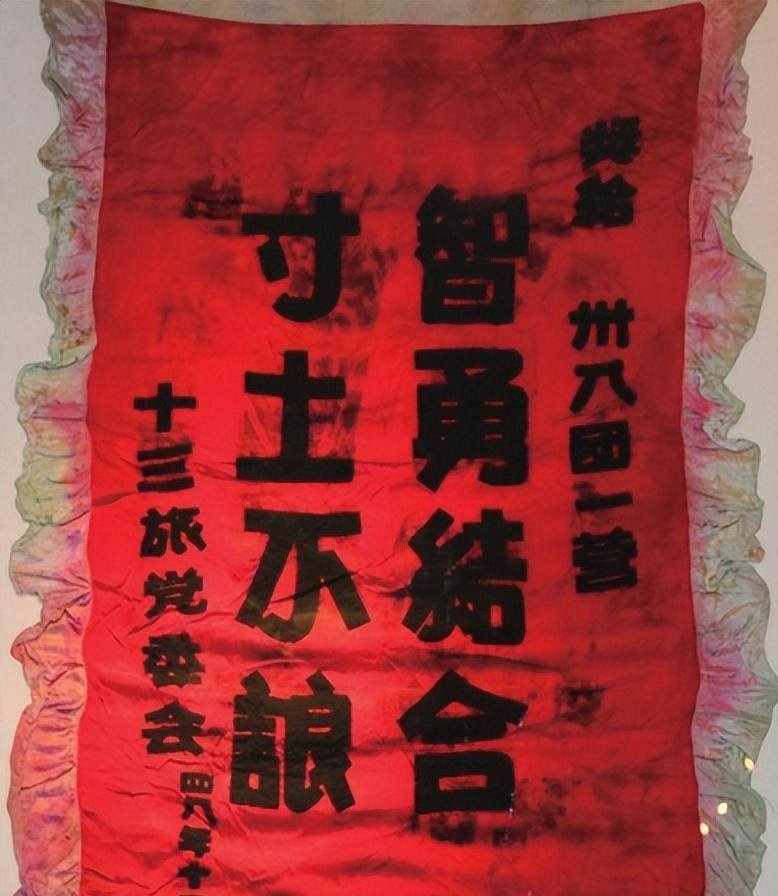 奬給 卅八团一营
智勇結合
寸土不誏
十三旅党委会
四八年十